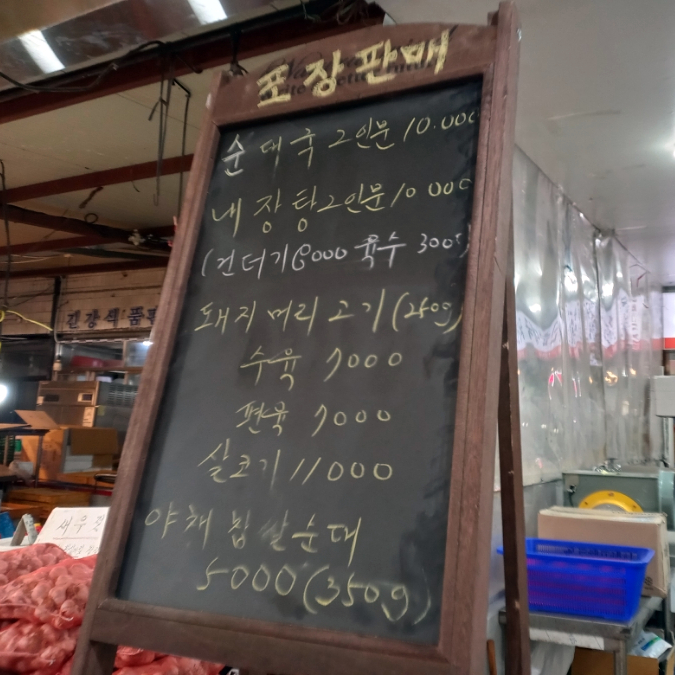 포장판매
순대국 2인분 10.000
내장탕 2인분 10000
(건더기 8000 육수 3000)
돼지머리고기(250g)
수육 7000
편육 7000
살코기 11000
야채찹쌀순대
5000 (350g)
건강식품
새우